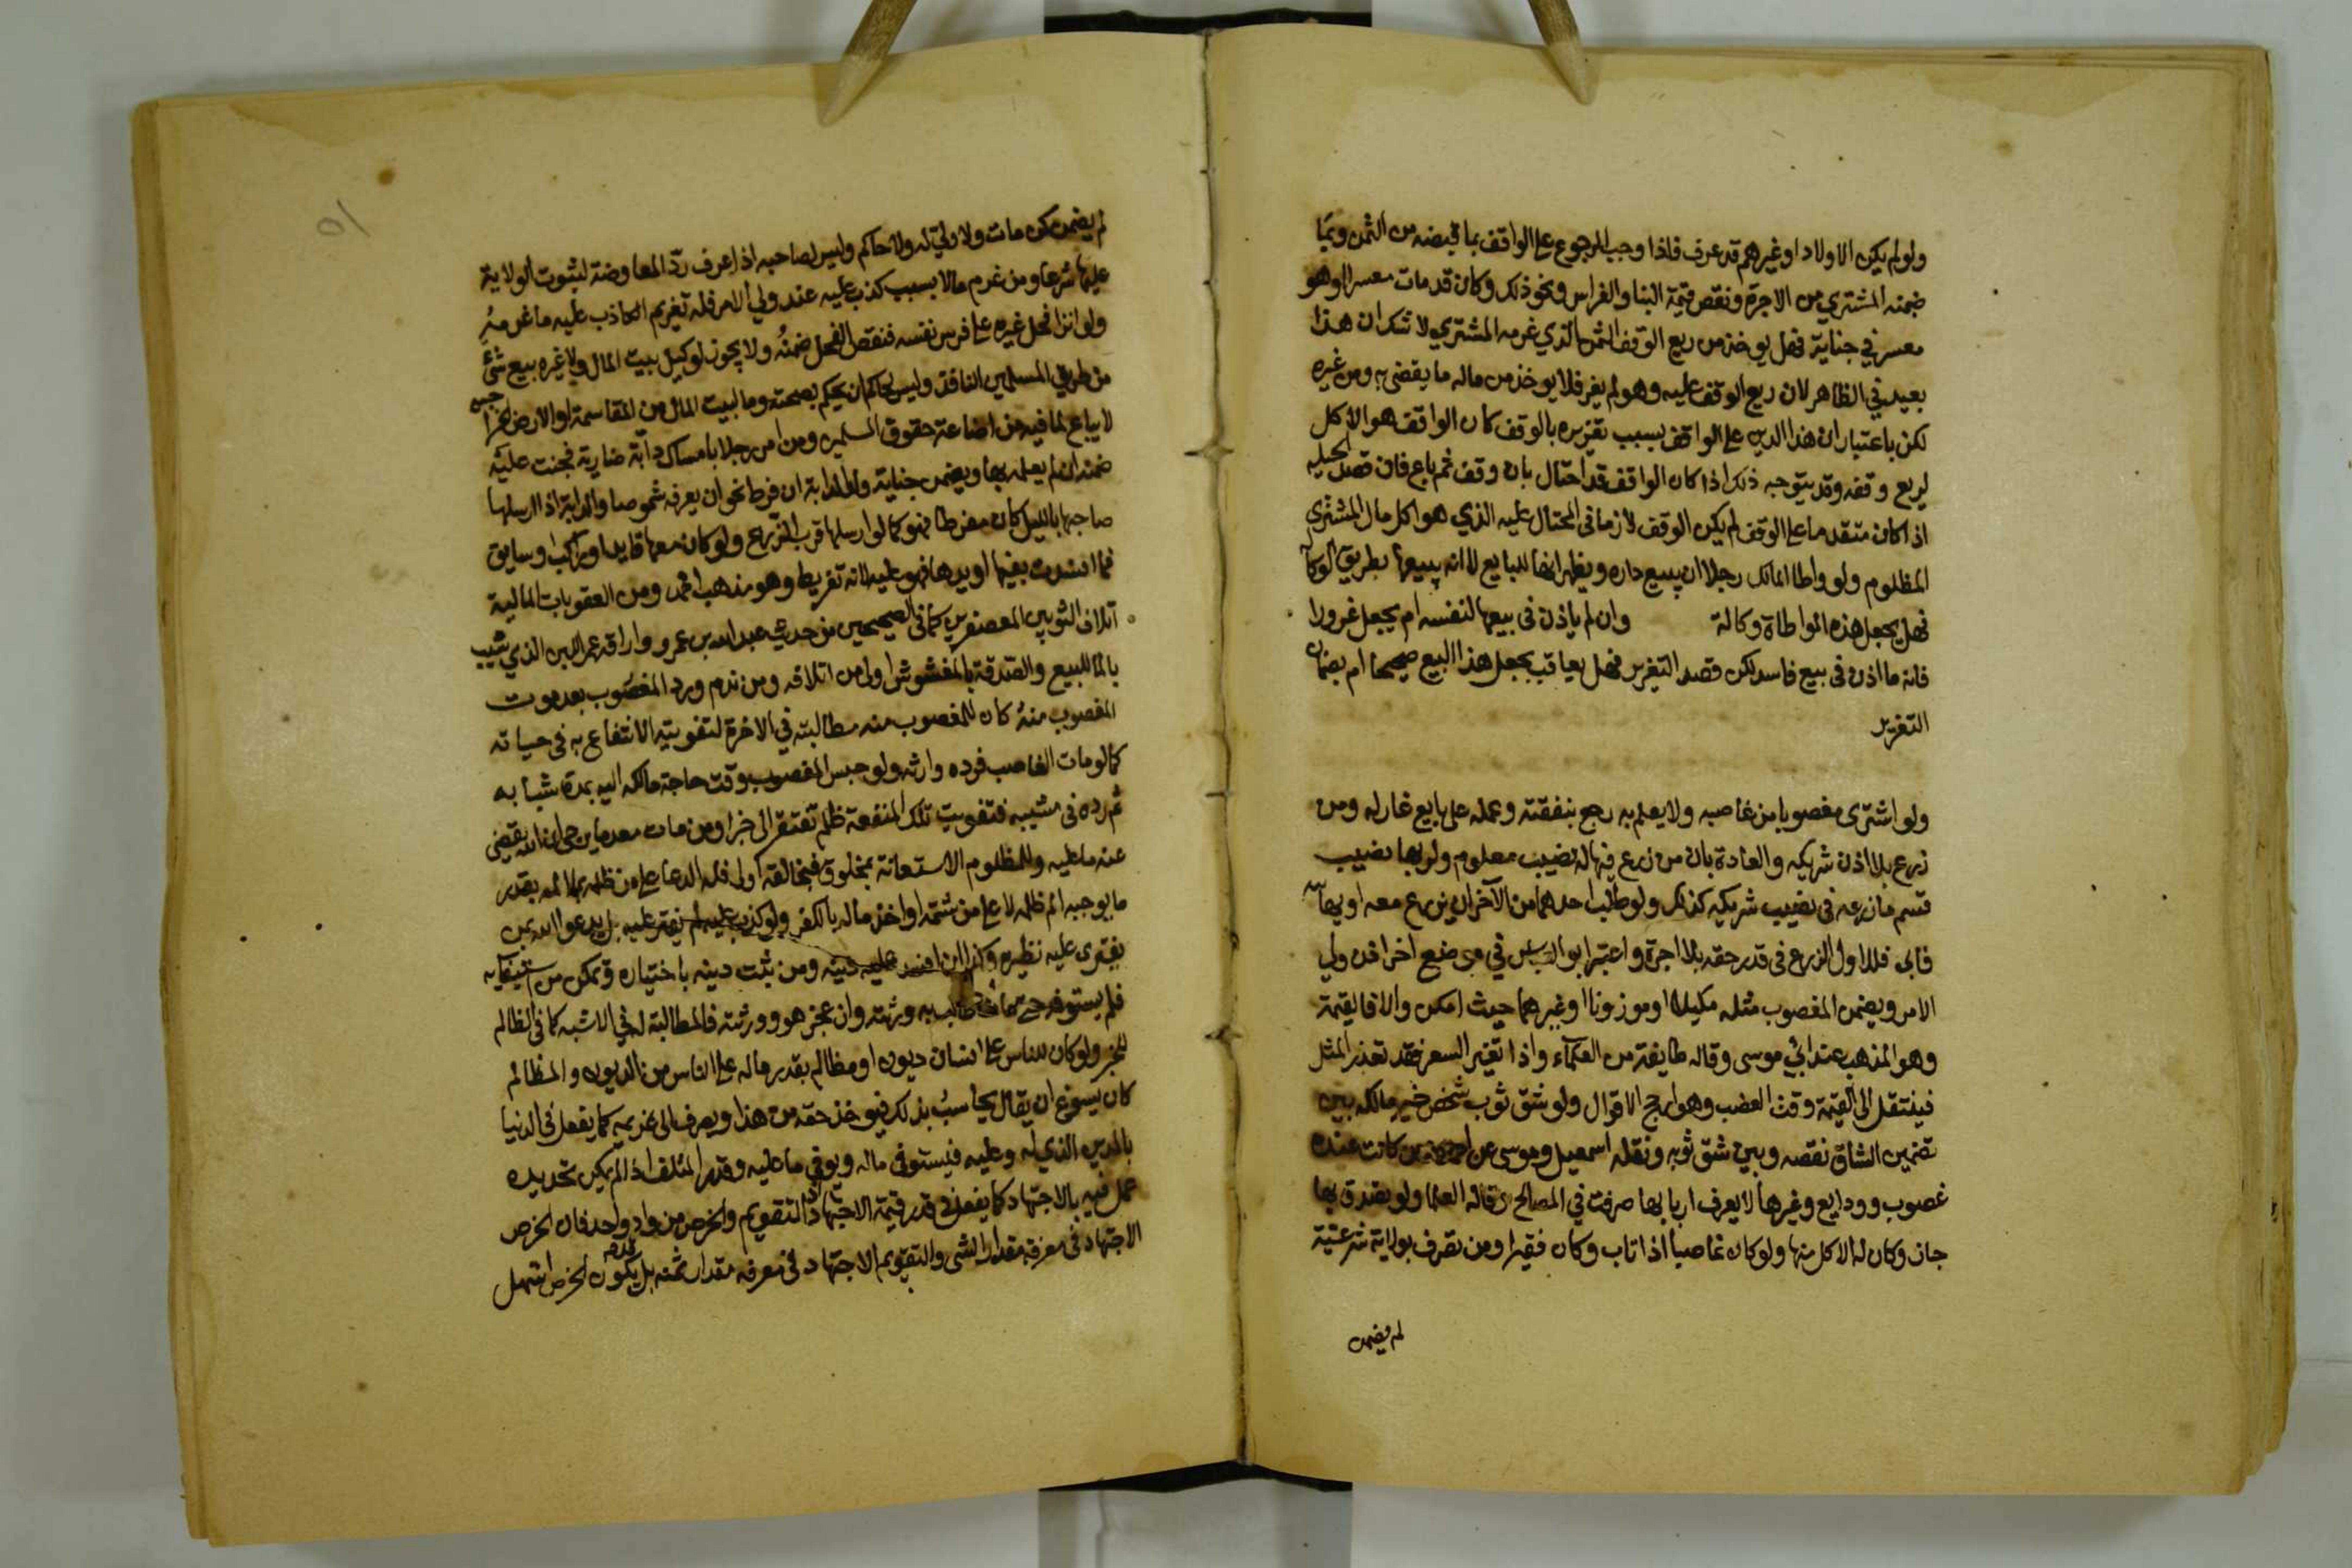 ولو لم يكن الاولاد او غيرهم قد عرف فاذا وجب الرجوع على الواقف بما قبضه من الثمن وبما
ضمنه المشتري من الاجرة ونقص قيمة البنا والغراس ونحو ذلك وكان قد مات معسرا او هو
معسر في حياته فهل يوخذ من ريع الوقف الثمن الذي غرمه المشتري لا شك ان هذا
بعيد في الظاهر لان ريع الوقف عليه وهو لم يغر فلا يوخذ من ماله ما يقضى به دين غيره
لكن باعتبار ان هذا الدين على الواقف بسبب تغريره بالوقف كان الواقف هو الاكل
لريع وقفه وقد يتوجه ذلك اذا كان الواقف قد احتال بان وقف ثم باع فان قصد الحيلة
اذا كان متقدما على الوقف لم يكن الوقف لازما في المحتال عليه الذي هو اكل مال المشتري
المظلوم ولو واطا المالك رجلا ان يبيع داره ويظهر انها للبايع لا انه يبيعها بطريق الوكالة
فهل يجعل هذه المواطاة وكالة وان لم ياذن في بيعها لنفسه ام يجعل غرورا
فانه ما اذن في بيع فاسد لكن قصد التغرير فهل يعاقب بجعل هذا البيع صحيحا ام بضمان
التغرير
ولو اشترى مغصوبا من غاصبه ولا يعلم به رجع بنفقته وعمله على بايع غار له ومن
زرع بلا اذن شريكه والعادة بان من زرع فيها له نصيب معلوم ولربها نصيب
قسم ما زرعه في نصيب شريكه كذلك ولو طلب احدهما من الآخر ان يزرع معه او يهايه
فابى فللاول الزرع في قدر حقه بلا اجرة واعتبر ابو العباس في موضع اخر اذن ولي
الامر ويضمن المغصوب مثله مكيلا او موزونا او غيرهما حيث امكن والا فالقيمة
وهو المذهب عند ابي موسى وقاله طايفة من العلماء واذا تغير السعر فقد تعذر المثل
فينتقل الى القيمة وقت الغضب وهو ارجح الاقوال ولو شق ثوب شخص خير مالكه بين
تضمين الشاق نقصه وبين شق ثوبه ونقله اسمعيل وموسى عن احمد ومن كانت عنده
غصوب وودايع وغيرها لا يعرف اربابها صرفت في المصالح وقاله العلما ولو تصدق بها
جاز وكان له الاكل منها ولو كان غاصبا اذا تاب وكان فقيرا ومن تصرف بولاية شرعية
لم يضمن
لم يضمن كمن مات ولا ولي له ولا حاكم وليس لصاحبه اذا عرف رد المعاوضة لثبوت الولاية
عليها شرعا ومن غرم مالا بسبب كذب عليه عند ولي الامر فله تغريم الكاذب عليه ما غرمه
ولو انزا فحل غيره على فرس نفسه فنقص الفحل ضمنه ولا يجوز لوكيل بيت المال ولا غيره بيع شيء
من طريق المسلمين النافذ وليس لحاكم ان يحكم بصحته وما لبيت المال من المقاسمة او الارض الخراجيه
لا يباع لما فيه من اضاعة حقوق المسلمين ومن امر رجلا بامساك دابة ضارية فجنت عليه
ضمنه ان لم يعلمه بها ويضمن جناية ولد الدابة ان فرط نحو ان يعرفه شموصا والدابة اذا ارسلها
صاحبها بالليل كان مفرطا فهو كما لو ارسلها قرب الزرع ولو كان معها قايد او راكب او سايق
فما افسدت بفيها او يدها فهو عليه لانه تفريط وهو مذهب احمد ومن العقوبات المالية
اتلاف الثوبين المعصفرين كما في الصحيحين من حديث عبد الله بن عمرو واراقة عمر اللبن الذي شيب
بالماء للبيع والصدقة بالمغشوش اولى من اتلافه ومن ندم ورد المغصوب بعد موت
المغصوب منه كان للمغصوب منه مطالبته في الاخرة لتفويته الانتفاع به في حياته
كما لو مات الغاصب فرده وارثه ولو حبس المغصوب وقت حاجة مالكه اليه بمدة شبابه
ثم رده في مشيبه فتفويت تلك المنفعة ظلم تفتقر الى جزا ومن مات معدما يرجى ان الله يقضي
عنه ما عليه وللمظلوم الاستعانة بمخلوق فبخالقه اولى فله الدعا على من ظلمه بقدر
ما يوجبه الم ظلمه لا على من شتمه او اخذ ماله بالكفر ولو كذب عليه لم يفتر عليه بل يدعو الله بمن
يفترى عليه نظيره وكذا ان افسد عليه دينه ومن بثت دينه باختياره وتمكن من استيفايه
فلم يستوفه حتى مات طالب به ورثته وان عجز هو وورثته فالمطالبة له في الاشبه كما في المظالم
للخبر ولو كان للناس على انسان ديون او مظالم بقدر ماله على الناس من الديون والمظالم
كان يسوغ ان يقال يحاسب بذلك فيوخذ حقه من هذا ويصرف الى غريمه كما يفعل في الدنيا
بالمدين الذي له وعليه فيستوفي ماله ويوفي ما عليه وقدر المتلف اذا لم يكن تحديده
عمل فيه بالاجتهاد كما يفعل في قدر قيمته الاجتهاد اذ التقويم والخرص من واد واحد فان الخرص
الاجتهاد في معرفة مقدار الشي والتقويم الاجتهاد في معرفة مقدار ثمنه بل يكون الخرص اسهل